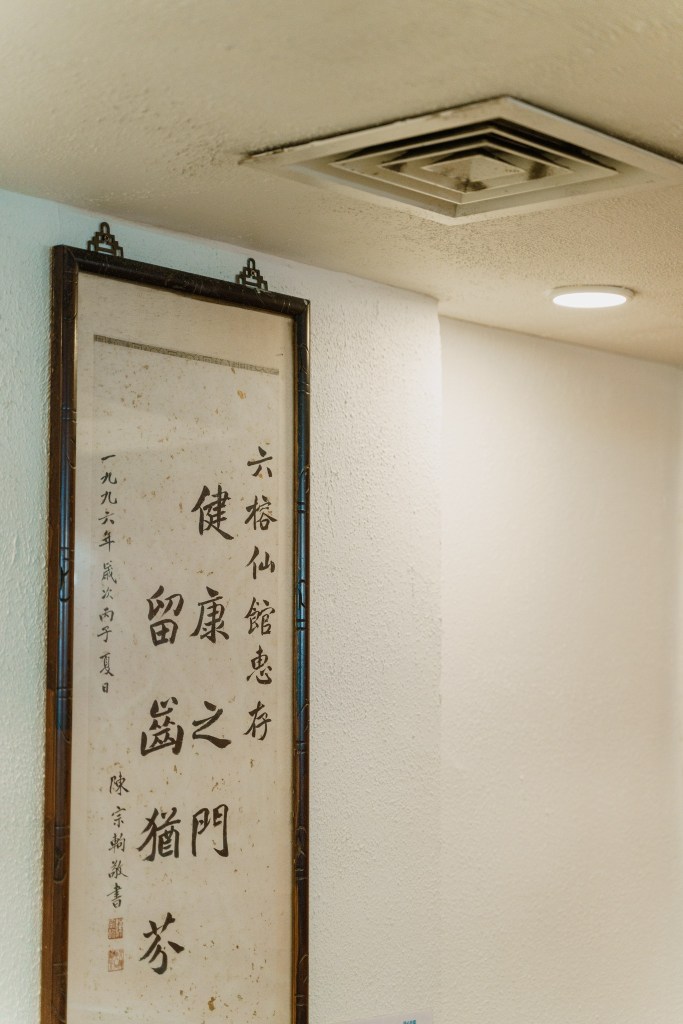 六榕仙館惠存
健康之門
留齒猶芬
一九九六年歲次丙子夏日
陳宗朐敬書